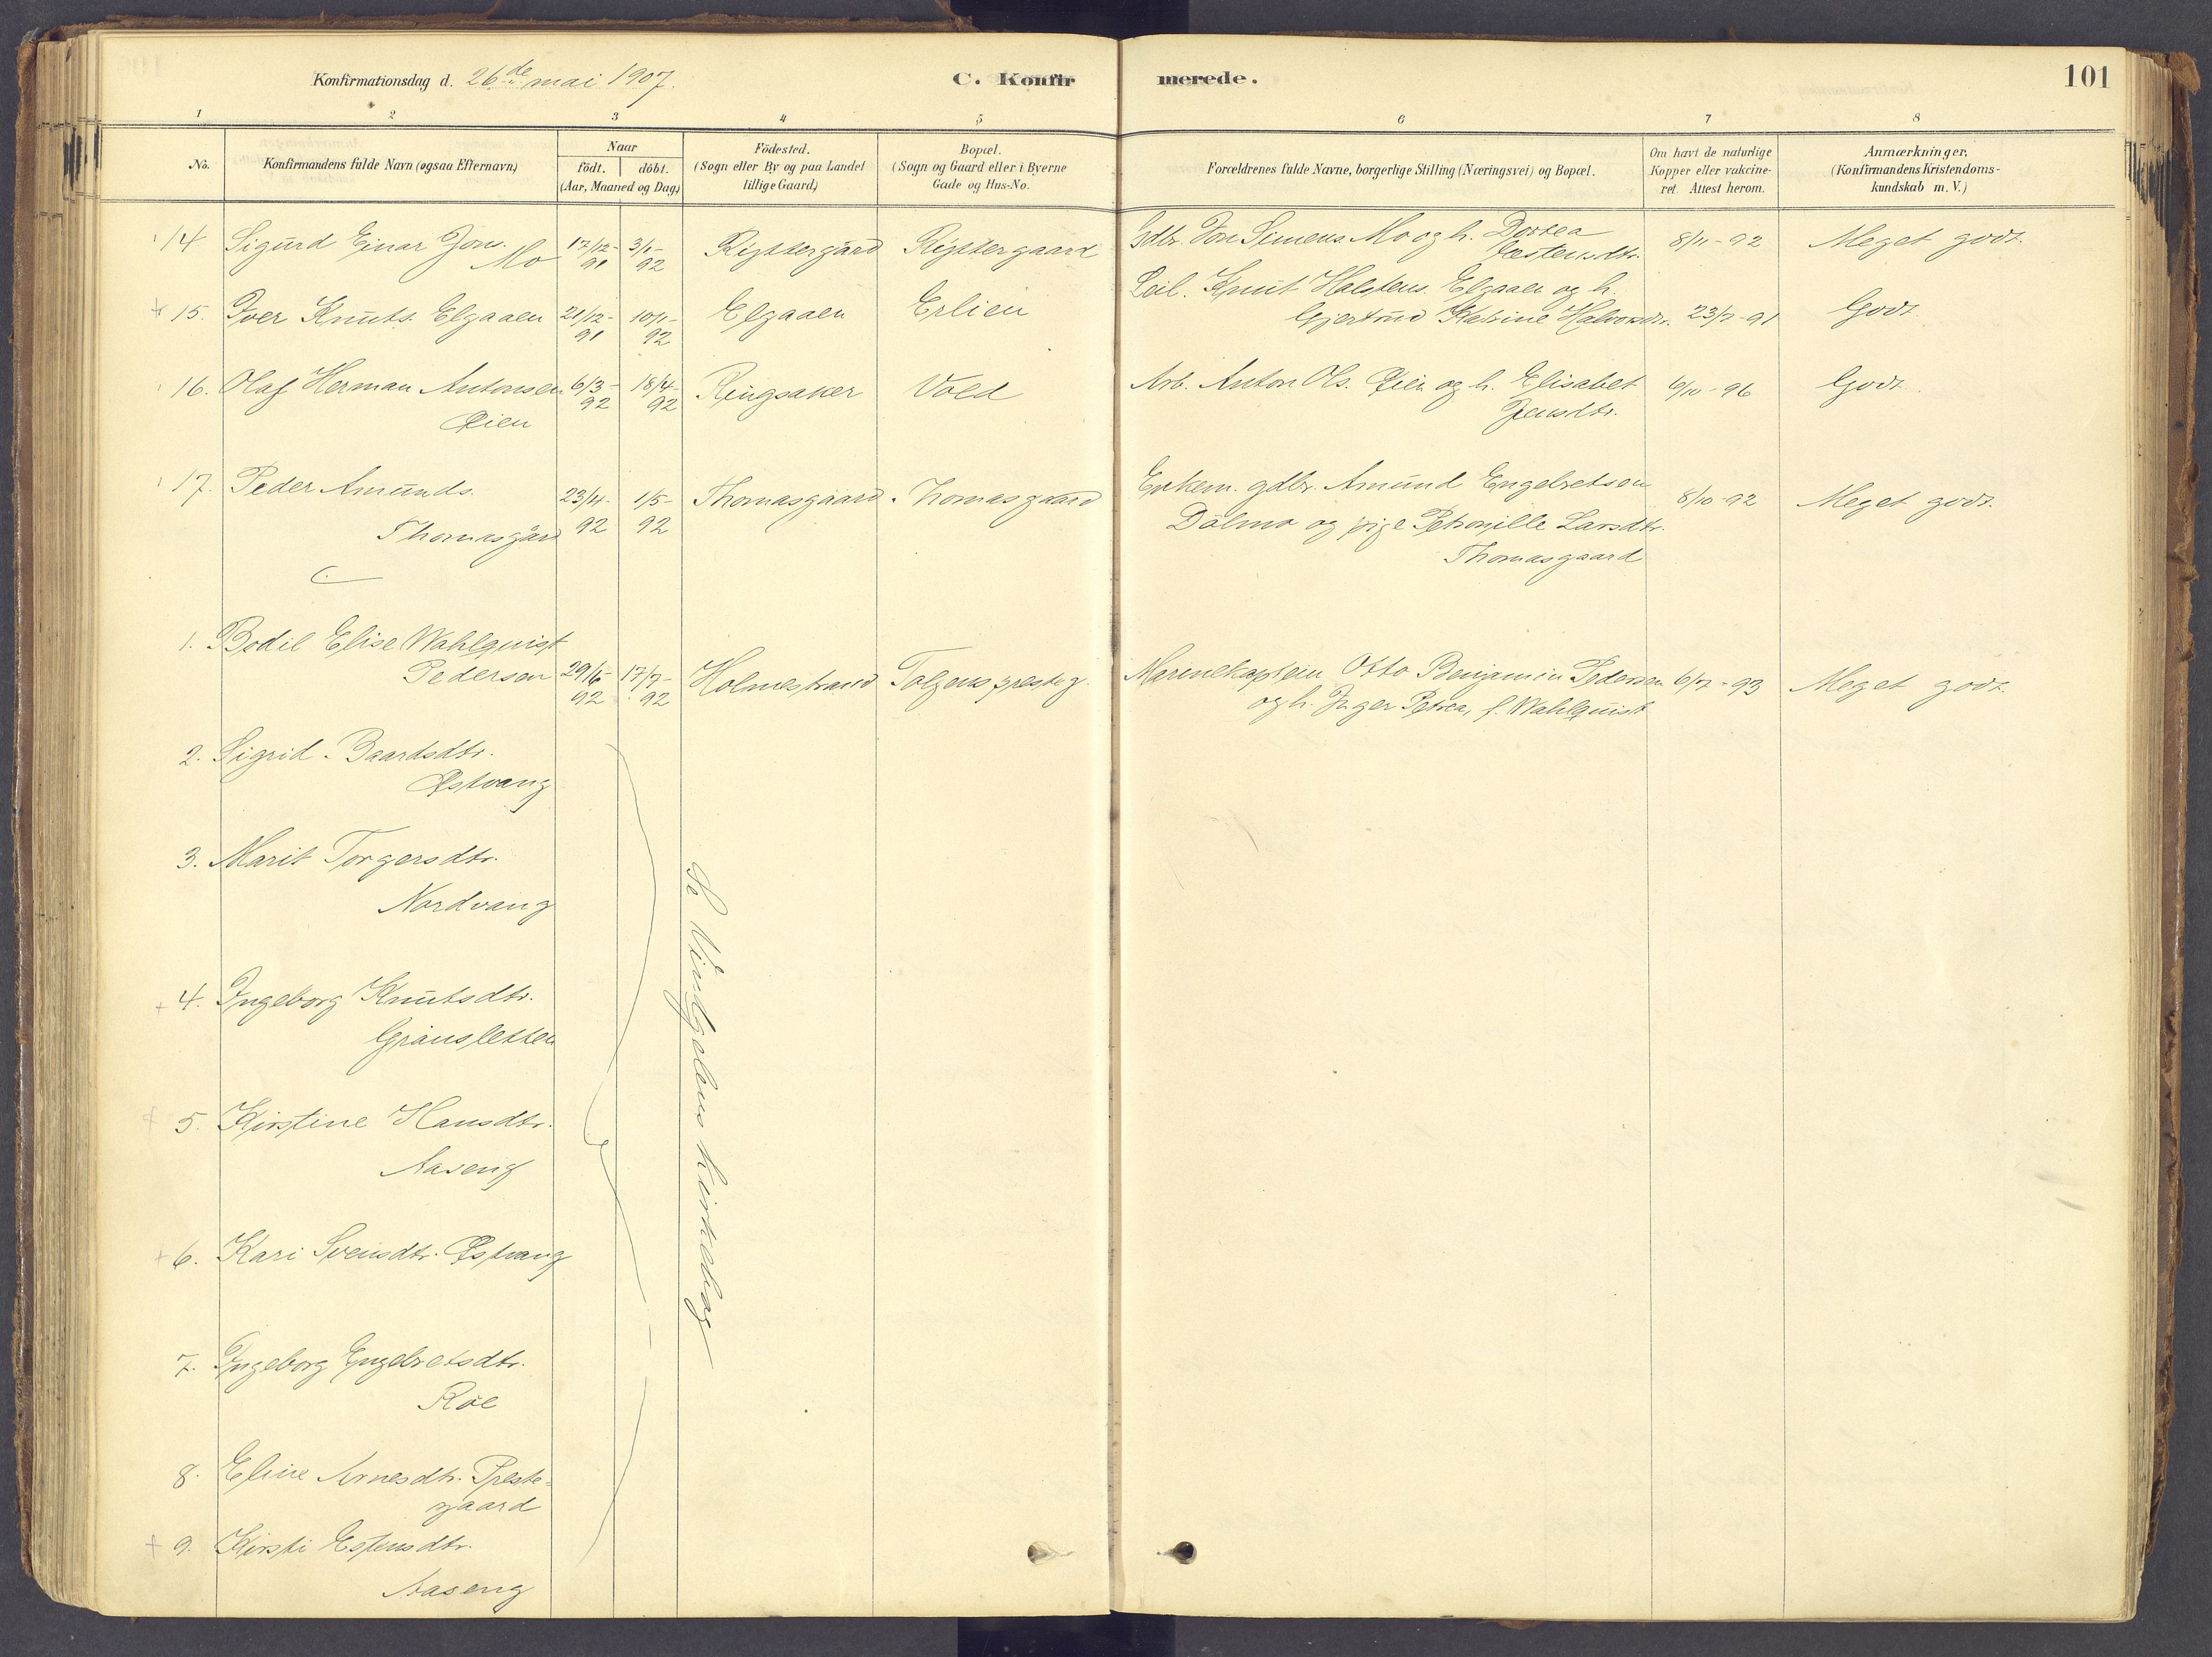 Konfirmationsdag d. 26de mai 1907.
C. Konfirmerede.
101
1 2 3 4 5 6 7 8
No.
Konfirmandens fulde Navn (ogsaa Efternavn)
Naar
födt. döbt.
(Aar, Maaned og Dag)
Födested.
(Sogn eller By og paa Landet
tillige Gaard)
Bopæl.
(Sogn og Gaard eller i Byerne
Gade og Hus-No.
Forældrenes fulde Navne, borgerlige Stilling (Næringsvei) og Bopæl.
Om havt de naturlige
Kopper eller vakcine-
ret. Attest herom.
Anmærkninger.
(Konfirmandens Kristendoms-
kundskab m. V.)
14 Sigurd Einar Jons. Mo 17/12-91 3/1-92 Rigstergaard Rigstergaard Gdbr. Jon Simens. Mo og h. Dortea Estensdtr. 8/11-92 Meget godt.
15. Iver Knuts. Elgaaen 21/12-91 10/1-92 Elgaaen Erlien Leil. Knut Halstens. Elgaaen og h.
Gjertrud Katrine Halvorsdtr. 23/7-91 Godt
16. Olaf Herman Antonsen Øien 6/3-92 18/4-92 Ringsaker Vold Arb. Anton Ols. Øien og h. Elisabet Jensdtr. 6/10-96 Godt.
17. Peder Amunds. Thomasgård 23/4-92 1/5-92 Thomasgaard Thomasgaard Enkem. gdbr. Amund Engebretsen
Dalmo og pige Petronille Larsdtr.
Thomasgaard 8/10-92 Meget godt.
1. Bodil Elise Wahlquist
Pedersen 29/6-92 17/7-92 Holmestrand Tolgens presteg. Marinekaptein Otto Benjamin Pedersen
og h. Inger Petrea, f. Wahlquist 6/7-93 Meget godt.
2. Sigrid Baardsdtr.
Østvang
3. Marit Torgersdtr.
Nordvang
4. Ingeborg Knutsdtr.
Graasletten
5. Kirstine Hansdtr.
Aaseng
6. Kari Svensdtr. Østvang
7. Ingeborg Engebretsdtr.
Røe
8. Eline Arnesdtr. Preste-
gaard
9. Kirsti Estensdtr.
Aaseng
Se Vingelens kirkebog